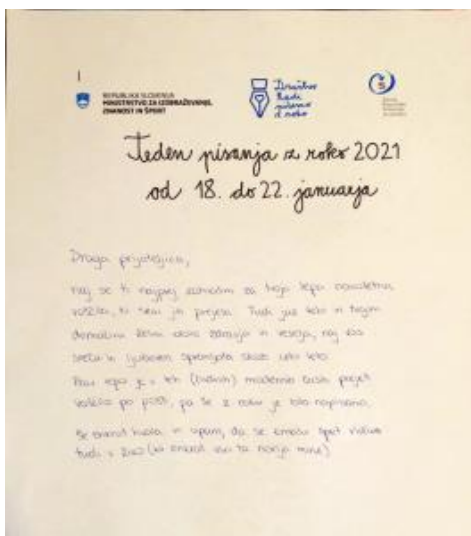 REPUBLIKA SLOVENIJA
MINISTRSTVO ZA IZOBRAŽEVANJE,
ZNANOST IN ŠPORT
Društvo
Radi
pišemo
z roko
Teden pisanja z roko 2021
od 18. do 22. januarja
Draga prijateljica,
naj se ti najprej zahvalim za tvoja lepa novoletna
voščila, ki sem jih prejela. Tudi jaz tebi in tvojim
domačim želim obilo zdravja in veselja, naj vas
sreča in ljubezen spremljata skozi celo leto.
Prav lepo je v teh (čudnih) modernih časih prejeti
voščilo po pošti, pa še z roko je bilo napisano.
Še enkrat hvala in upam, da se kmalu spet vidiva
tudi v živo (ko enkrat vsa ta norija mine).